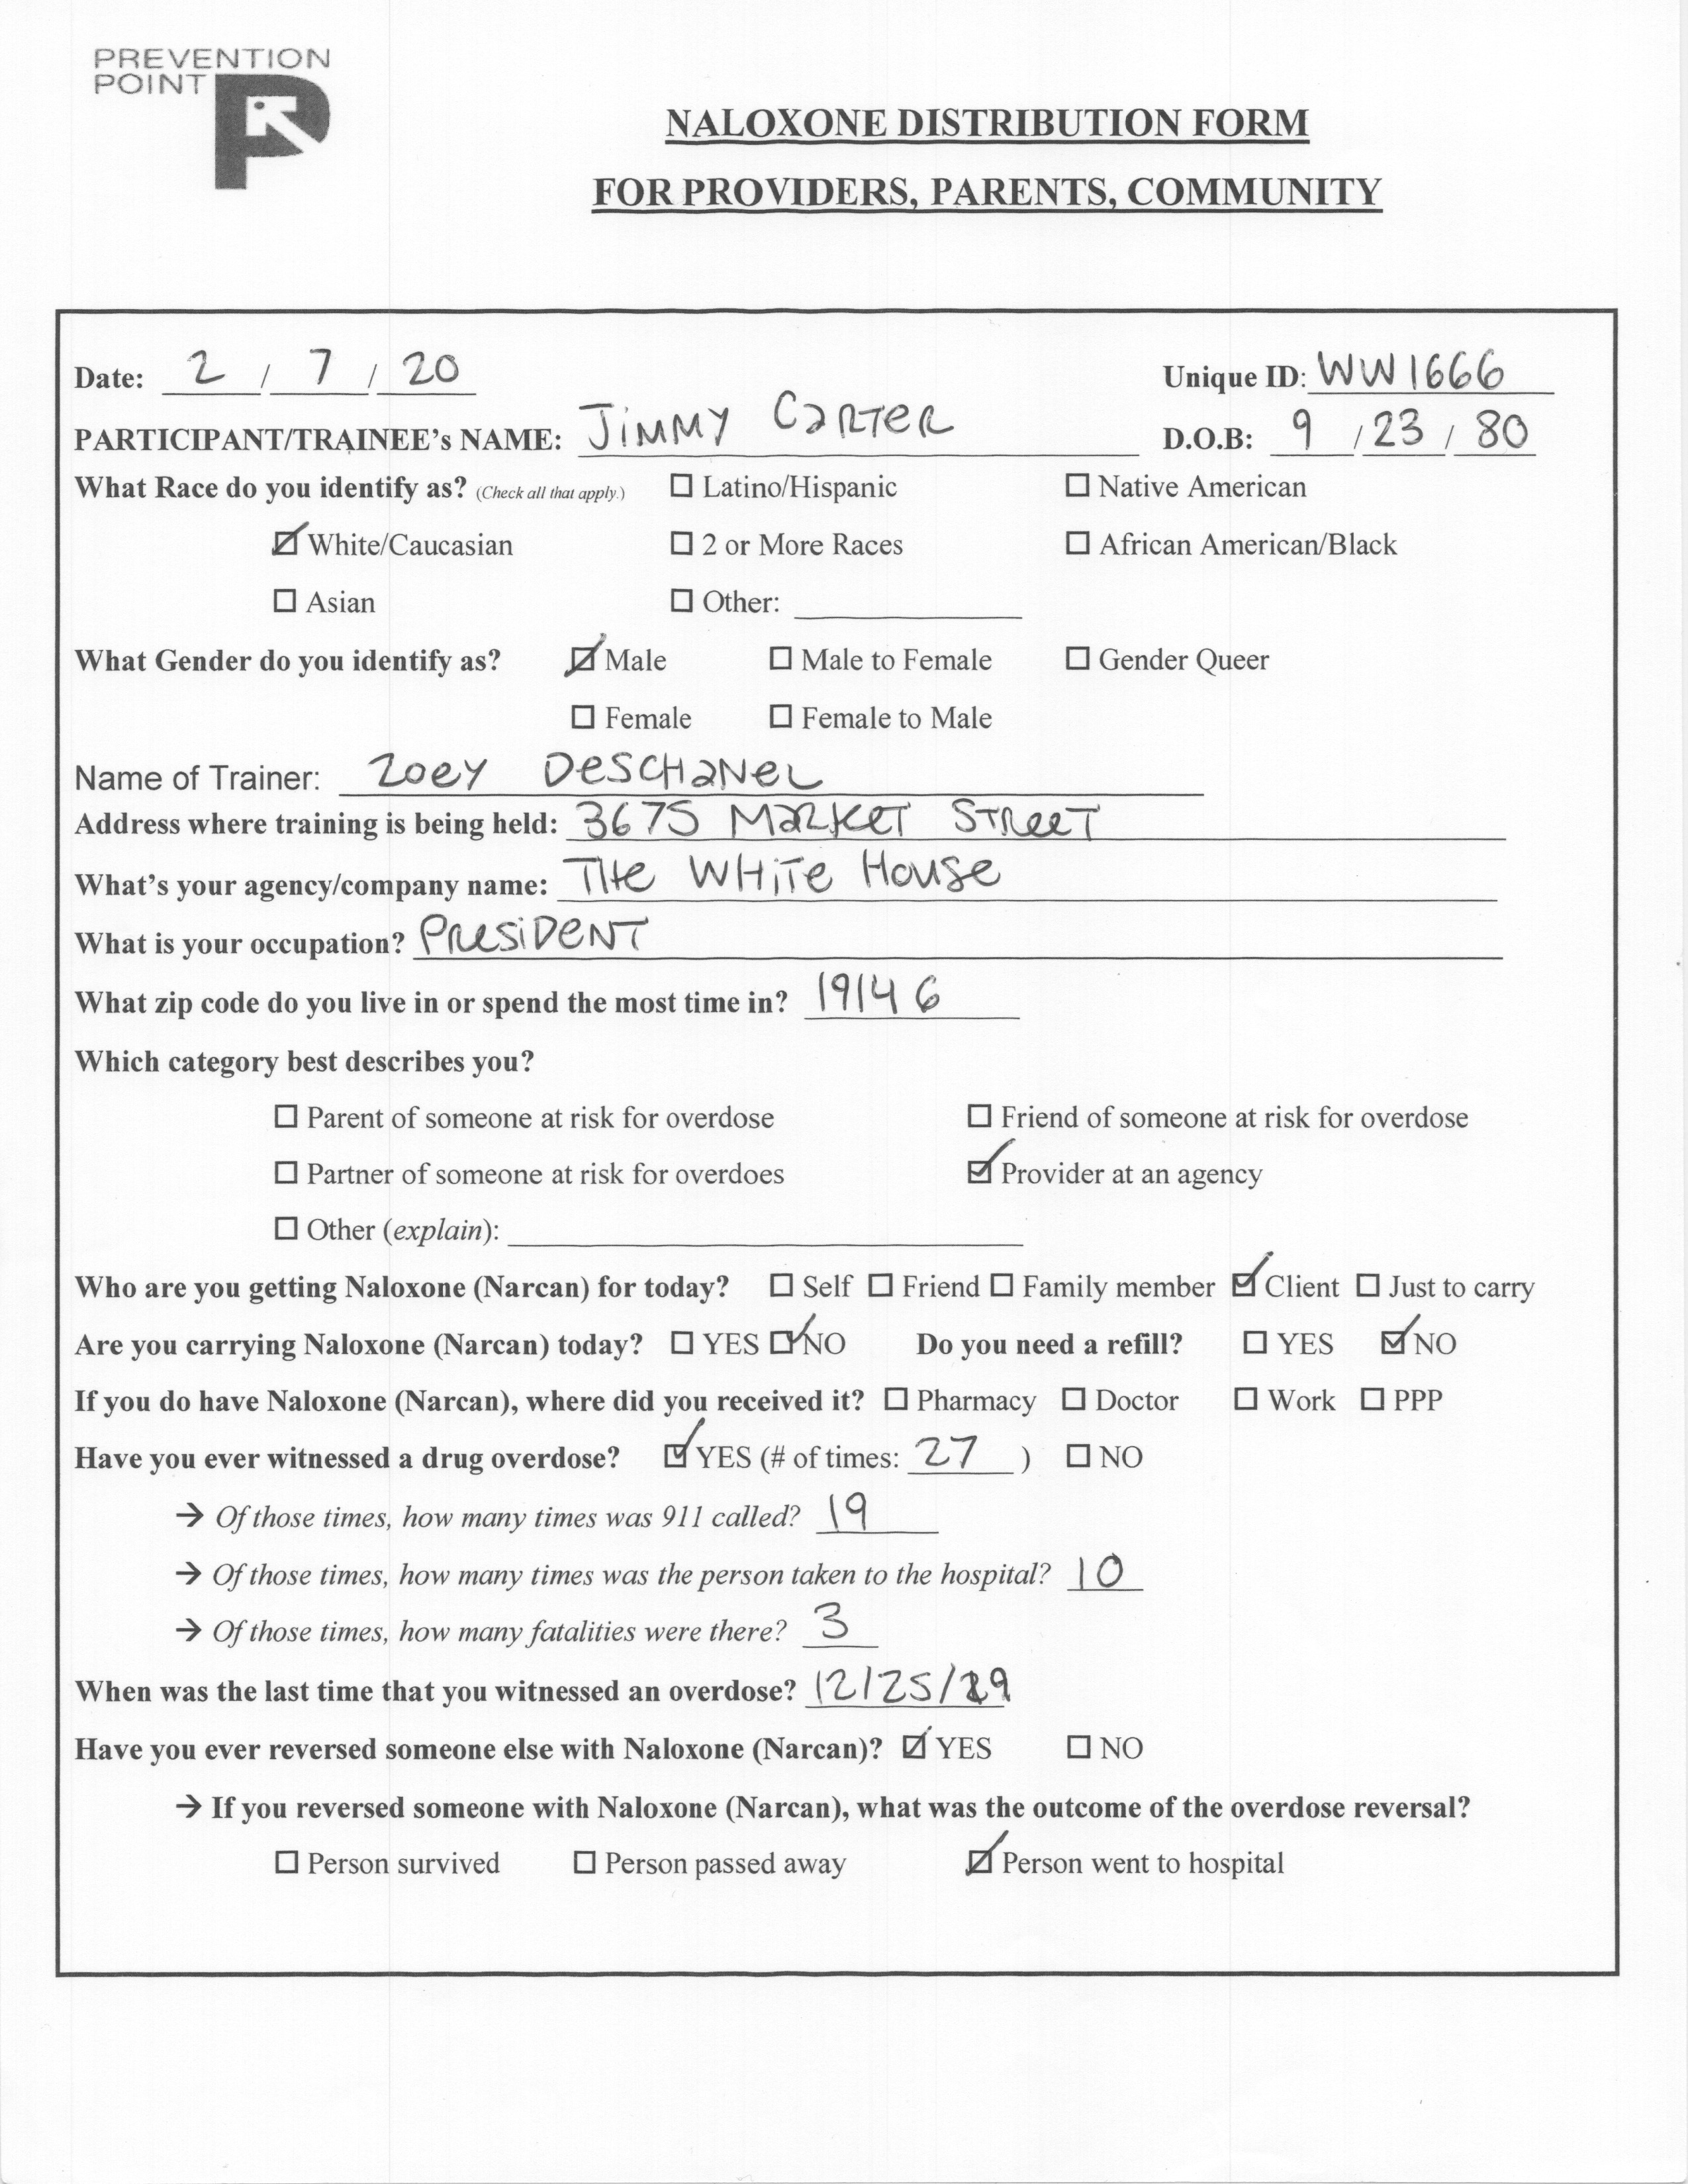 PREVENTION
POINT
NALOXONE DISTRIBUTION FORM
FOR PROVIDERS, PARENTS, COMMUNITY
Date: 2 / 7 / 20 Unique ID: WW1666
PARTICIPANT/TRAINEE's NAME: JiMMY CaRTeR D.O.B: 9 / 23 / 80
What Race do you identify as? (Check all that apply.) ☐ Latino/Hispanic ☐ Native American
☑ White/Caucasian ☐ 2 or More Races ☐ African American/Black
☐ Asian ☐ Other:
What Gender do you identify as? ☑ Male ☐ Male to Female ☐ Gender Queer
☐ Female ☐ Female to Male
Name of Trainer: Zoey DeSCHaNeL
Address where training is being held: 3675 MaRKeT STReeT
What's your agency/company name: THe WHiTe House
What is your occupation? PResiDeNT
What zip code do you live in or spend the most time in? 19146
Which category best describes you?
☐ Parent of someone at risk for overdose ☐ Friend of someone at risk for overdose
☐ Partner of someone at risk for overdoes ☑ Provider at an agency
☐ Other (explain):
Who are you getting Naloxone (Narcan) for today? ☐ Self ☐ Friend ☐ Family member ☑ Client ☐ Just to carry
Are you carrying Naloxone (Narcan) today? ☐ YES ☑ NO Do you need a refill? ☐ YES ☑ NO
If you do have Naloxone (Narcan), where did you received it? ☐ Pharmacy ☐ Doctor ☐ Work ☐ PPP
Have you ever witnessed a drug overdose? ☑ YES (# of times: 27 ) ☐ NO
→ Of those times, how many times was 911 called? 19
→ Of those times, how many times was the person taken to the hospital? 10
→ Of those times, how many fatalities were there? 3
When was the last time that you witnessed an overdose? 12/25/19
Have you ever reversed someone else with Naloxone (Narcan)? ☑ YES ☐ NO
→ If you reversed someone with Naloxone (Narcan), what was the outcome of the overdose reversal?
☐ Person survived ☐ Person passed away ☑ Person went to hospital